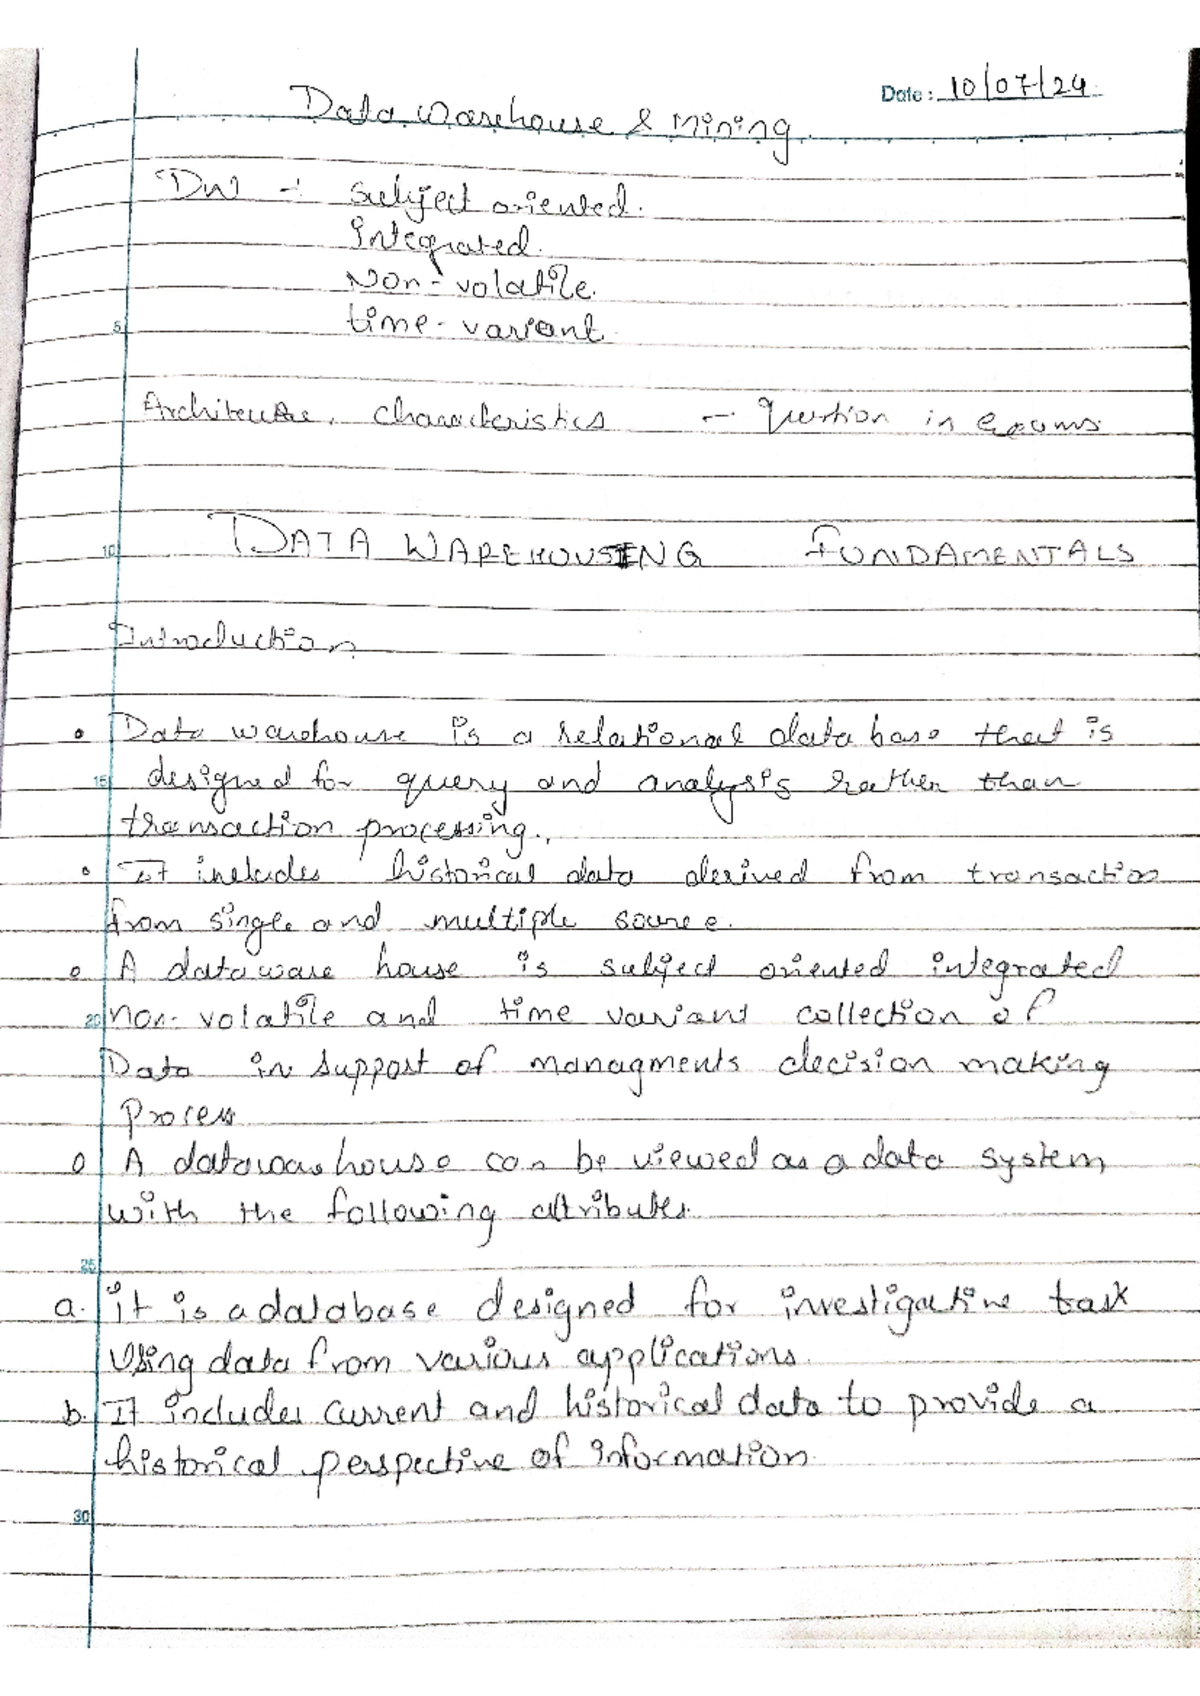 Date: 10/07/24
Data Warehouse & Mining.
DW - subject oriented.
Integrated.
Non-volatile.
time-variant.
5
Architecture, characteristics - question in exams
10
DATA WAREHOUSING FUNDAMENTALS
Introduction
• Data warehouse is a relational data base that is
15
designed for query and analysis rather than
transaction processing.
• It includes historical data derived from transaction
from single and multiple source.
• A dataware house is subject oriented integrated
20 non-volatile and time variant collection of
Data in support of managments decision making
Process
• A datawarehouse can be viewed as a data system
with the following attributes.
25
a. it is a database designed for investigative task
Using data from various applications.
b. It includes current and historical data to provide a
historical perspective of information
30